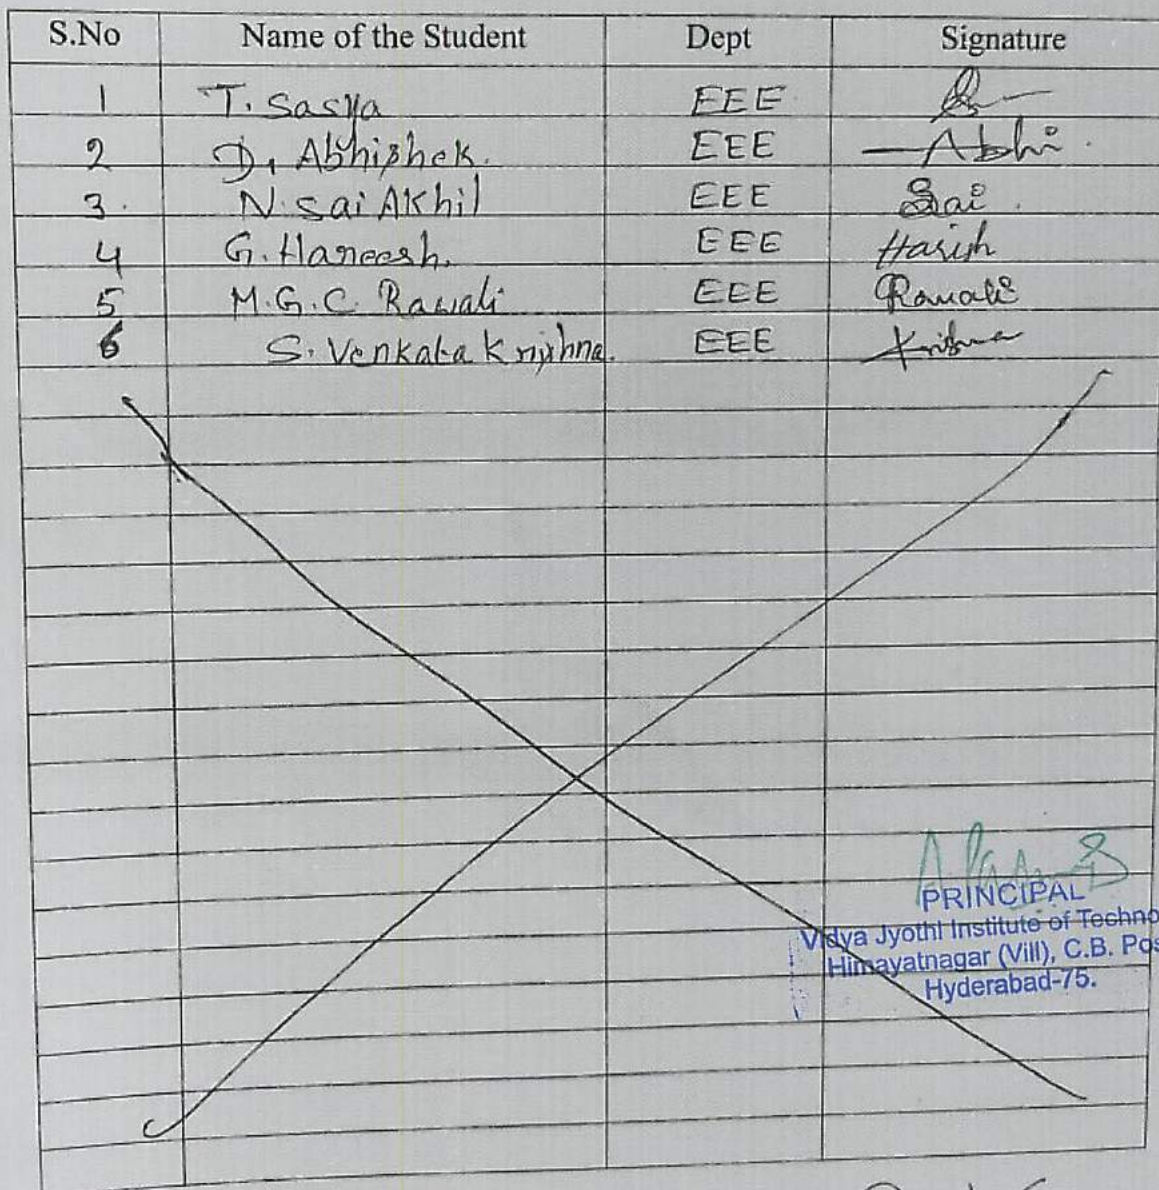 S.No Name of the Student Dept Signature
1 T. Sasya EEE
2 D. Abhishek. EEE Abhi
3. N. Sai Akhil EEE Sai
4 G. Hareesh. EEE Harish
5 M.G.C. Ravali EEE Ravali
6 S. Venkata Krishna. EEE Krishna
PRINCIPAL
Vidya Jyothi Institute of Techno
Himayatnagar (Vill), C.B. Pos
Hyderabad-75.